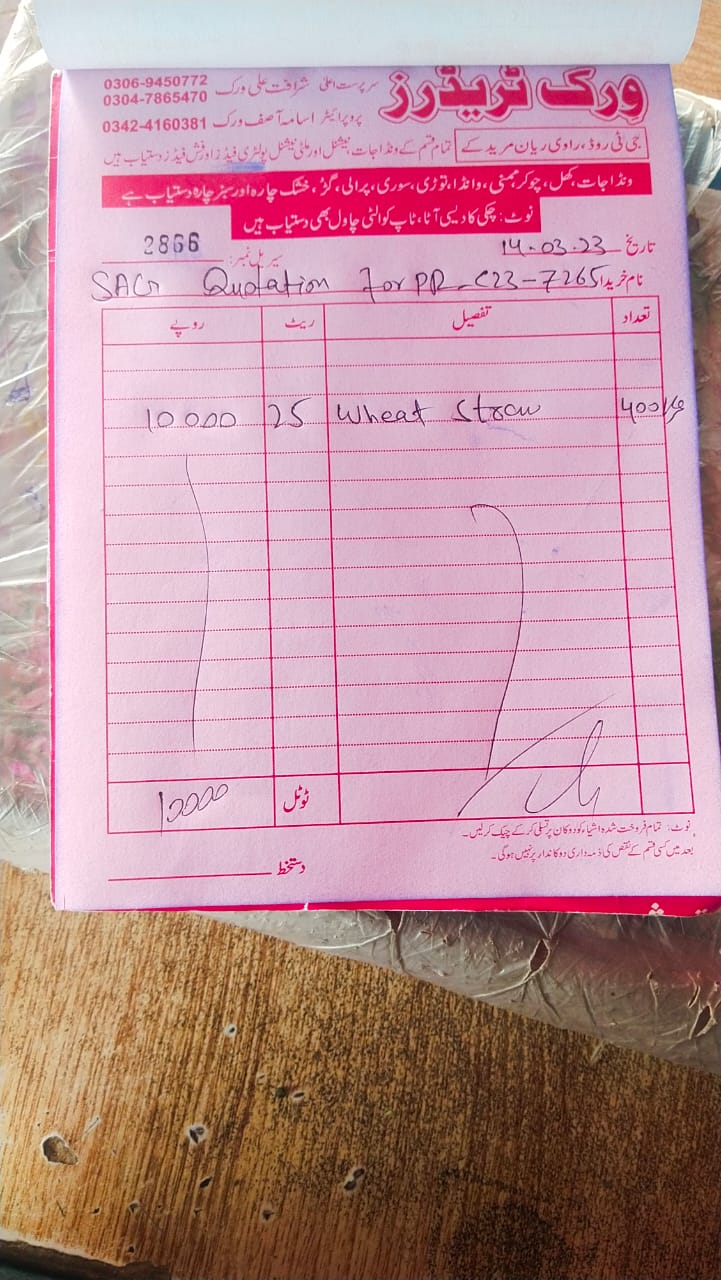 ورک ٹریڈرز
سرپرست اعلیٰ شرافت علی ورک 0306-9450772
0304-7865470
پروپرائیٹر اسامہ آصف ورک 0342-4160381
جی ٹی روڈ، راوی ریان مرید کے تمام قسم کے ونڈا جات نیشنل اور ملٹی نیشنل پولٹری فیڈز اور فش فیڈز دستیاب ہیں
ونڈا جات، کھل، چوکر، مکئی، وانڈا، توڑی، سوری، پرالی، گڑ، خشک چارہ اور سبز چارہ دستیاب ہے
نوٹ: چکی کا دیسی آٹا، ٹاپ کوالٹی چاول بھی دستیاب ہیں
تاریخ 14.03.23 سیریل نمبر: 2866
نام خریدار SAG Quotation For PR-C23-7265
تعداد تفصیل ریٹ روپے
400kg Wheat Straw 25 10000
ٹوٹل 10000
نوٹ: تمام فروخت شدہ اشیاء کو دوکان پر تسلی کر کے چیک کر لیں۔
بعد میں کسی قسم کے نقص کی ذمہ داری دوکاندار پر نہیں ہوگی۔
دستخط